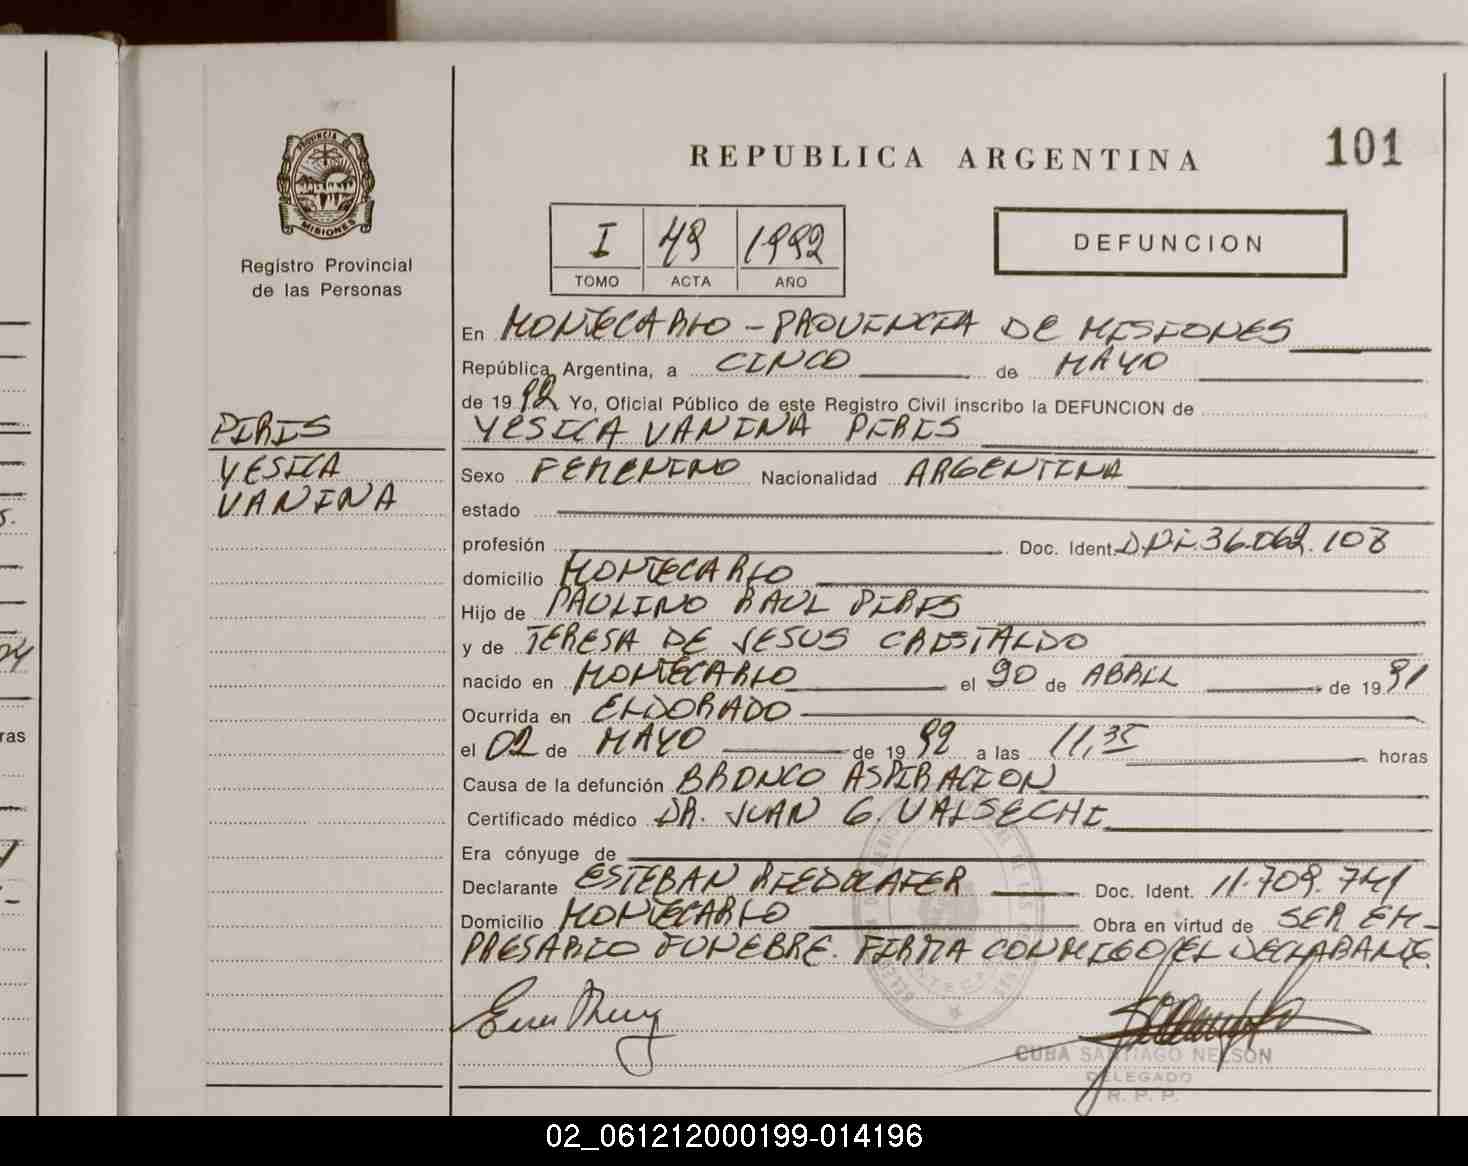 101
REPUBLICA ARGENTINA
PROVINCIA DE
MISIONES
Registro Provincial
de las Personas
I 49 1992
TOMO ACTA AÑO
DEFUNCION
En MONTECARLO - PROVINCIA DE MISIONES
República Argentina, a CINCO de MAYO
de 1992 Yo, Oficial Público de este Registro Civil inscribo la DEFUNCION de
YESICA VANINA PIRIS
PIRIS
YESICA
VANINA
Sexo FEMENINO Nacionalidad ARGENTINA
estado
profesión Doc. Ident. D.N.I. 36.062.108
domicilio MONTECARLO
Hijo de PAULINO RAUL PIRIS
y de TERESA DE JESUS CRISTALDO
nacido en MONTECARLO el 30 de ABRIL de 1991
Ocurrida en ELDORADO
el 02 de MAYO de 1992 a las 11,35 horas
Causa de la defunción BRONCO ASPIRACION
Certificado médico DR. JUAN G. VALSECHI
Era cónyuge de
Declarante ESTEBAN Doc. Ident. 11.709.741
Domicilio MONTECARLO Obra en virtud de SER EM-
PRESARIO FUNEBRE. FIRMA CONMIGO EL DECLARANTE.
CUBA SANTIAGO NELSON
DELEGADO
R. P. P.
02_061212000199-014196